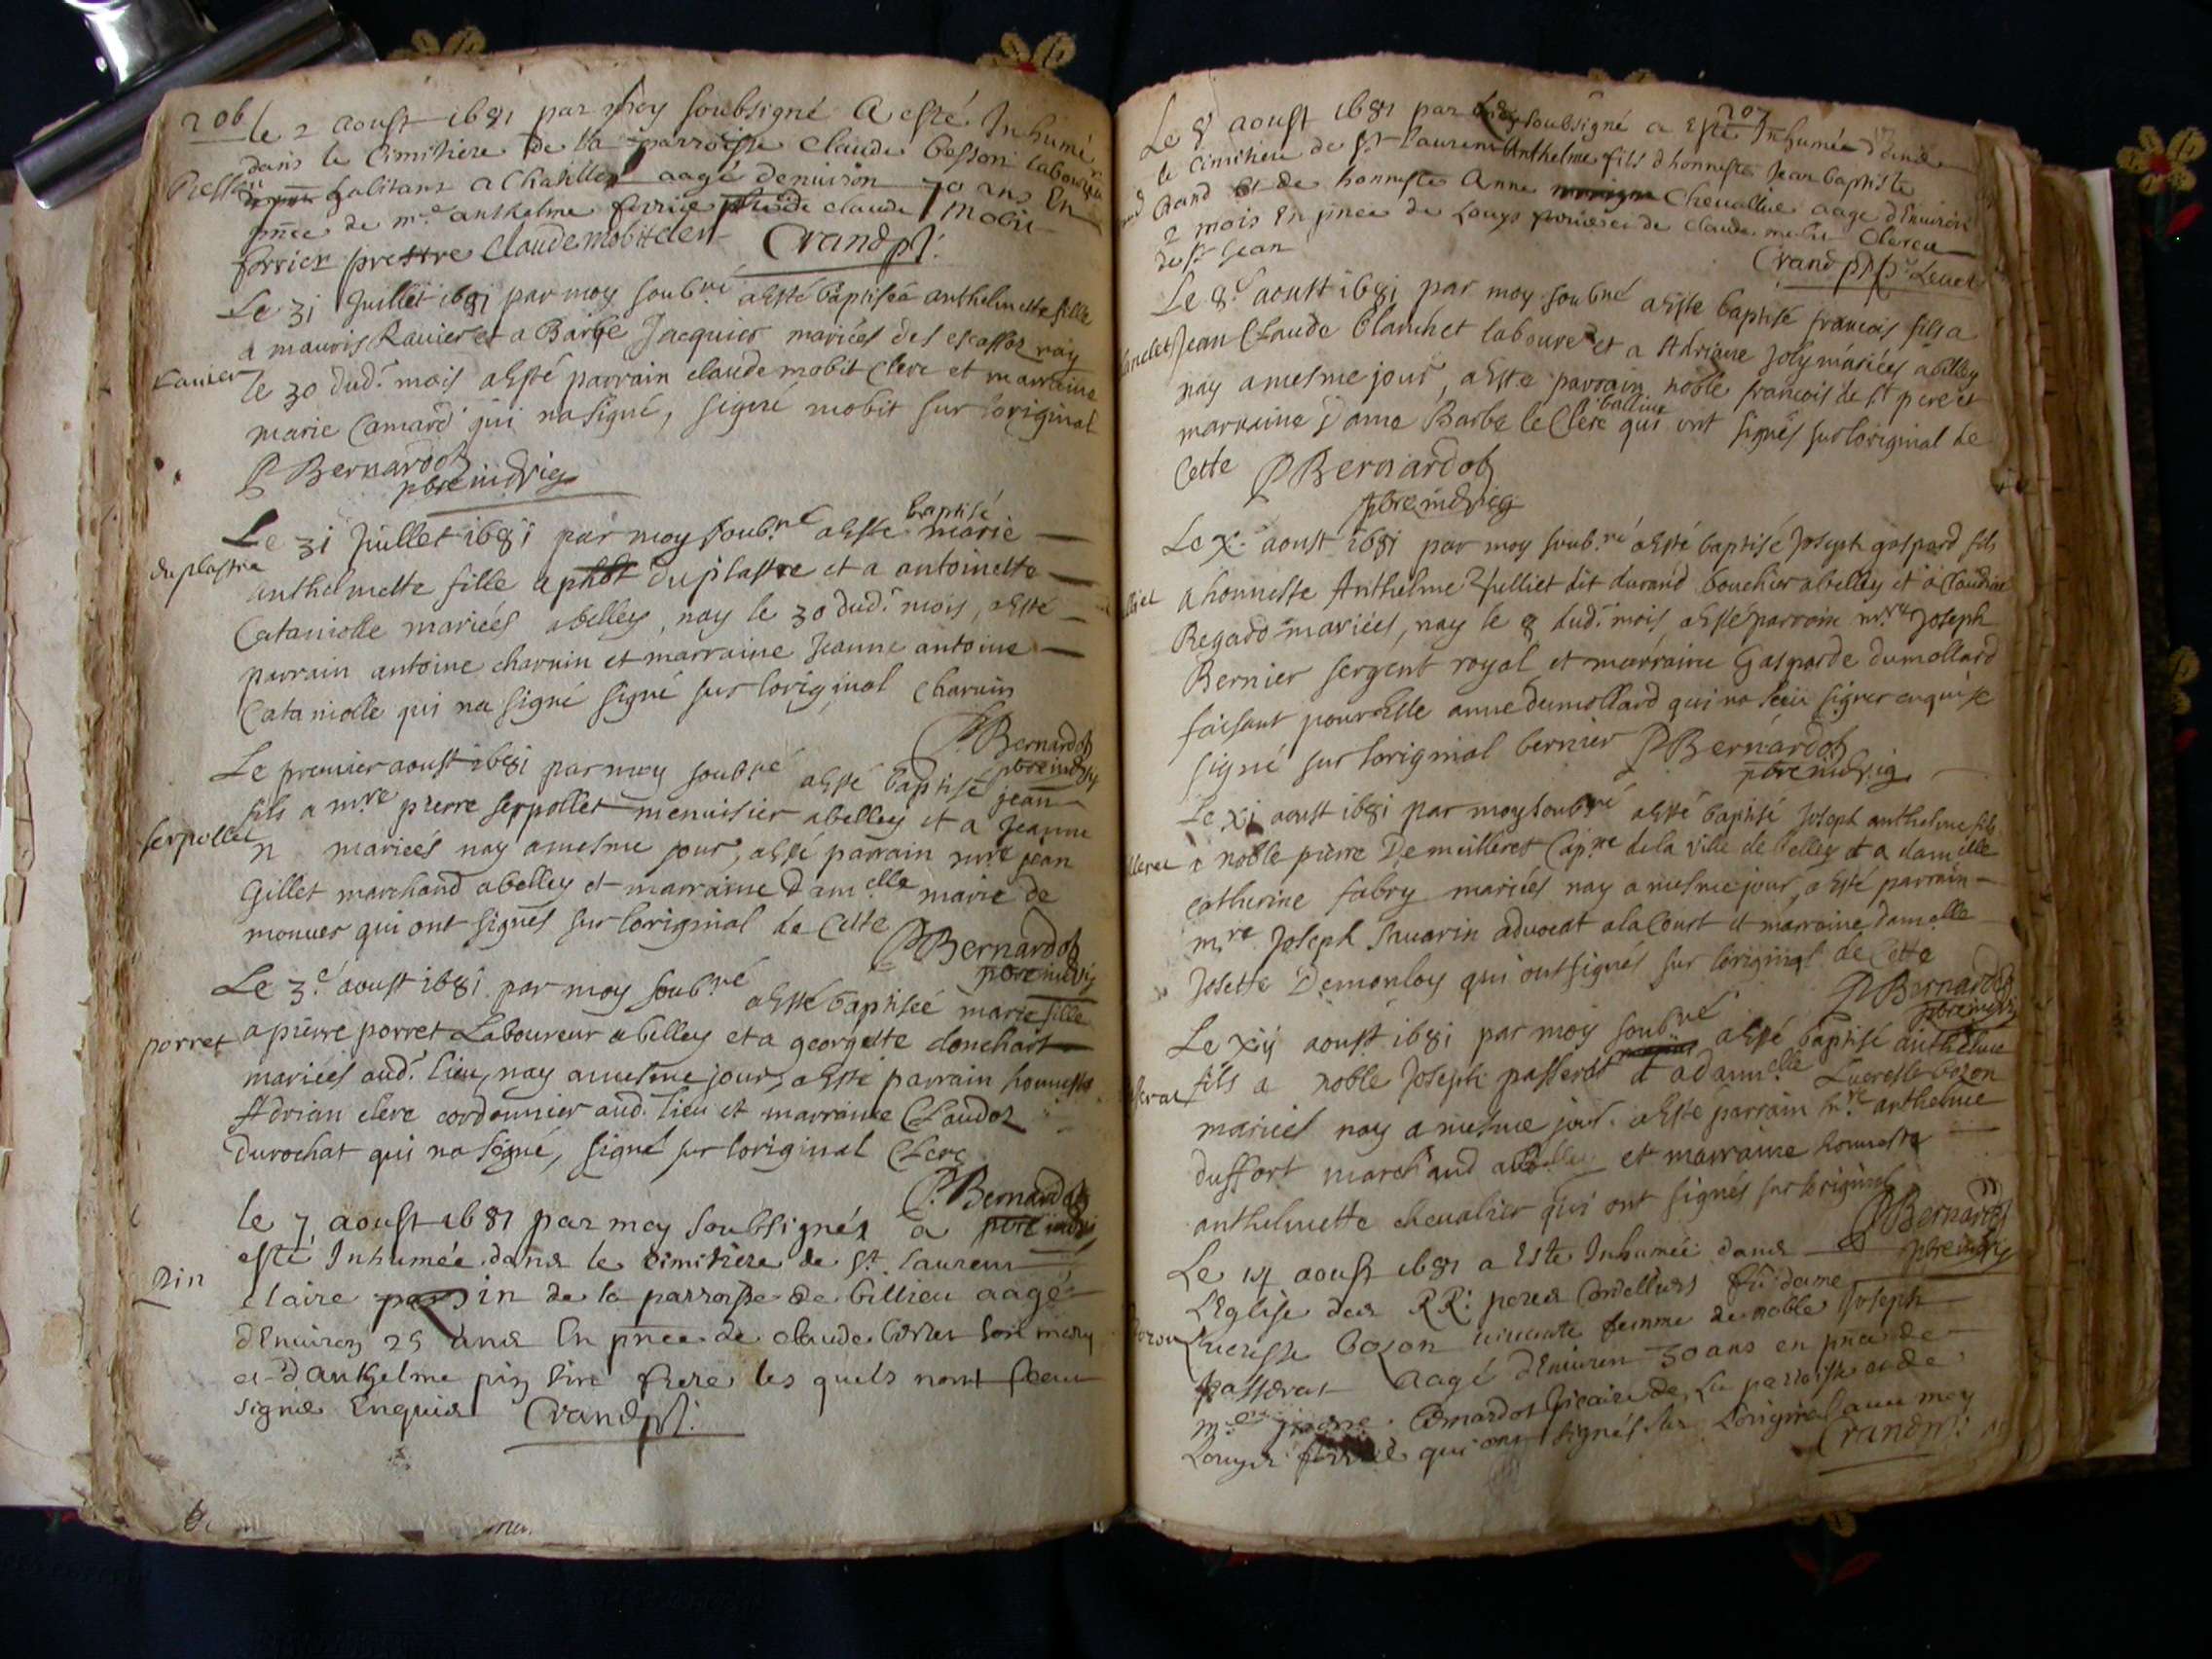 206
le 2 aoust 1681 par moy soubsigné a esté Inhumé
dans le Cimitiere de la parroisse claude besson laboureur
habitant a Chaillez aagé denuiron 70 ans En
pñce de mre anthelme ferrier claude Mobit
ferrier prestre Claude mobit clerc Crand pb:
Le 31 Juillet 1681 par moy soubné a Esté baptiseé anthelmette fille
Rauier
a mauris Rauier et a Barbe Jacquier mariéés des escassaz nay
le 30 dud. mois a Esté parrain claude mobit Clerc et marraine
marie Camard qui na signé, signé mobit sur loriginal
P Bernardot
pbre indvig
Le 31 Juillet 1681 par moy soub.né a Esté baptisé marie
duplastre
anthelmette fille a phbt duplastre et a antoinette
Cataniolle mariéés abelley, nay le 30 dud. mois, a Esté
parrain antoine charuin et marraine Jeanne antoine
Cataniolle qui na signé signé sur loriginal Charuin
P Bernardot
pbre indvig
Le premier aoust 1681 par moy soubné a Esté baptisé jean
fils a mre pierre serpollet menuisier abelley et a Jeanne
serpollet
n mariéés nay a mesme jour, a Esté parrain mre jean
Gillet marchand abelley et marraine damelle marie de
monuer qui ont signés sur loriginal de Cette
P Bernardot
pbre indvig
Le 3.e aoust 1681 par moy soubné a Esté baptiseé marie fille
porret
a pierre porret Laboureur abelley et a georgette donchart
mariéés aud. lieu, nay a mesme jour, a Esté parrain honneste
Adrian clerc cordonnier aud. lieu et marraine Claudoz
Durochat qui na signé, signé sur loriginal Clerc
P. Bernardot
pbre indvig
le 7 aoust 1681 par moy soubsigné a
esté Inhumée dans le cimitiere de St. laurent
Pin
claire pin de la parroisse de billieu aagé
dEnuiron 25 ans En pñce de claude son mary
et danthelme pin son frere les quels nont sceu
signer Enquis Crand pb:
207
Le 8 aoust 1681 par moy soubsigné a Esté Inhumée dans
le cimitiere de St laurent Anthelme fils dhonneste Jean baptiste
Crand et de honneste Anne Cheuallier aagé dEnuiron
2 mois En pñce de Louys ferrier et de claude mobit Clerc
de St Jean
Crand pb
Le 8.e aoust 1681 par moy soubné a Esté baptisé francois fils a
Jean Claude Clanchet laboure.r et a Adriane Joly mariéés abelley
nay a mesme jour, a Esté parrain noble francois de St pere et
marraine dame Barbe le Clerc qui ont signés sur loriginal de
Cette P Bernardot
pbre indvig
Le X. aoust 1681 par moy soub.né a Esté baptisé Joseph gaspard fils
a honneste Anthelme Julliet dit durand boucher abelley et a claudine
Regard mariéés, nay le 8 dud. mois, a Esté parrain mre Joseph
Bernier sergent royal et marraine Gasparde dumollard
faisant pour Elle anne dumollard qui na sceu signer enquise
signé sur loriginal bernier P Bernardot
pbre indvig
Le xj aoust 1681 par moy soubné a Esté baptisé Joseph anthelme fils
a noble pierre De meilleret Cap.ne de la ville de belley et a damelle
catherine fabry mariéés nay a mesme jour, a Esté parrain
mre Joseph Sauarin aduocat a la Court et marraine damelle
Josette Demonloy qui ont signés sur loriginal de Cette
P Bernardot
pbre indvig
Le xij aoust 1681 par moy soubné a Esté baptisé anthelme
fils a noble Joseph passerat et a damelle Lucresse bozon
mariéés nay a mesme jour. a Esté parrain mre anthelme
duffort marchand abelley et marraine honneste
anthelmette cheualier qui ont signés sur loriginal
P Bernardot
pbre indvig
Le 14 aoust 1681 a Esté Inhumée dans
LEglise des RR: peres Cordelliers dame
Lucresse bozon femme de noble Joseph
passerat aagé dEnuiron 30 ans en pñce de
mre pierre Bernardot Vicaire de la parroisse et de
Louys ferrier qui ont signés sur Loriginal auec moy
Crand pb: